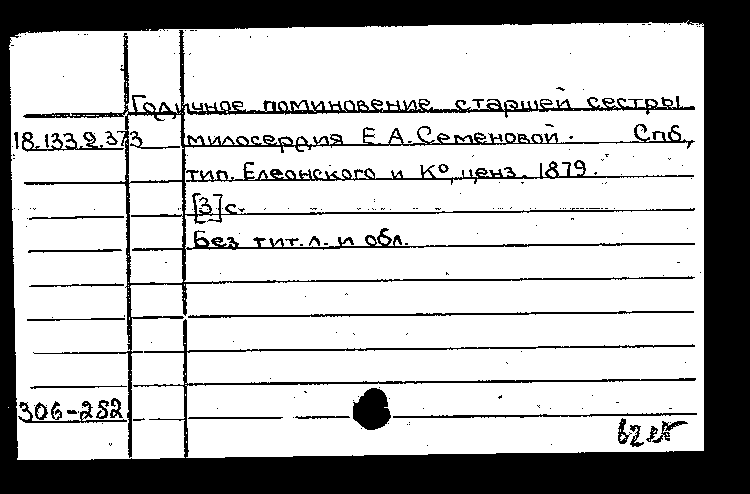 Годичное поминовение старшей сестры
18.133.2.373 милосердия Е.А.Семеновой. Спб,
тип. Елеонского и К°, ценз. 1879.
[3]с.
Без тит.л. и обл.
306-282